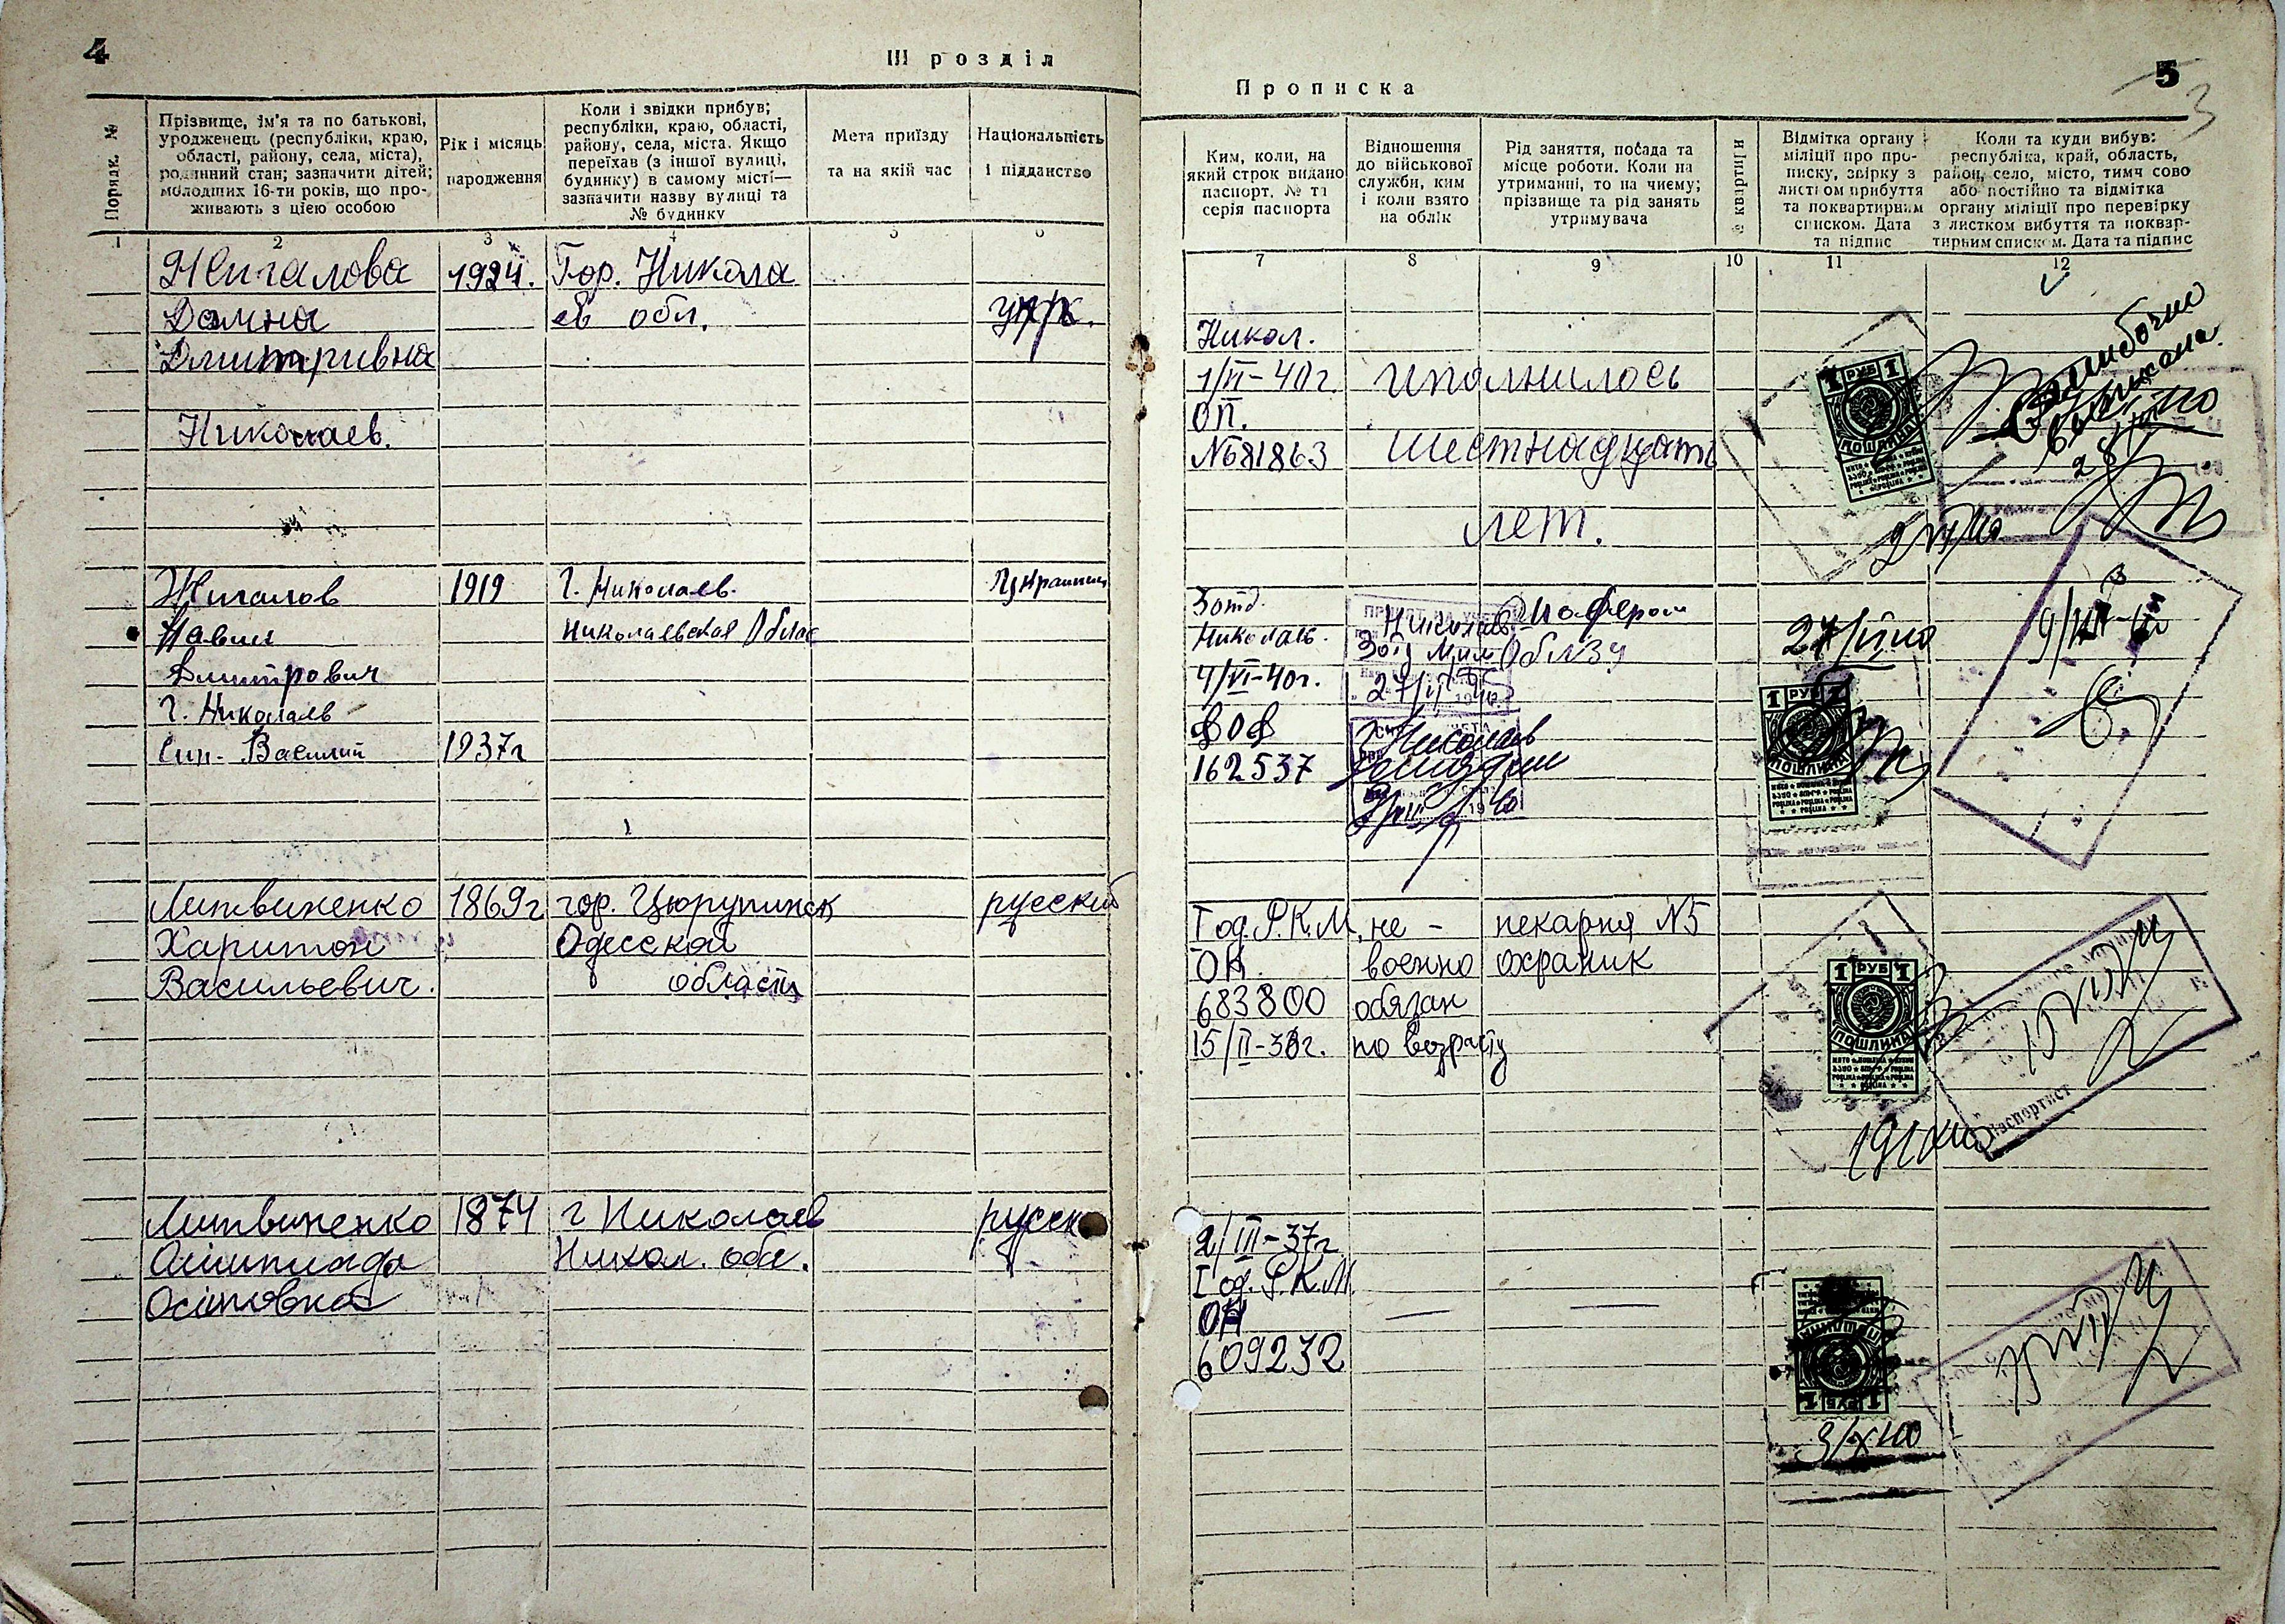 4
III розділ
Порядк. №
Прізвище, ім'я та по батькові,
уродженець (республіки, краю,
області, району, села, міста),
родинний стан; зазначити дітей;
молодших 16-ти років, що про-
живають з цією особою
Рік і місяць
народження
Коли і звідки прибув;
республіки, краю, області,
району, села, міста. Якщо
переїхав (з іншої вулиці,
будинку) в самому місті—
зазначити назву вулиці та
№ будинку
Мета приїзду
та на якій час
Національність
і підданство
1
2
3
4
5
6
Жигалова
1924.
Гор. Никола
Домна
ев обл.
укр.
Дмитривна
Николаев.
Жигалов
1919
г. Николаев.
Украинец
Павел
Николаевская Облас
Дмитрович
г. Николаев
Сын - Василий
1937г
Литвиненко
1869г
гор. Цюрупинск
русский
Харитон
Одесской
Васильевич.
области
Литвиненко
1874
г Николаев
русск
Олимпиада
Никол. обл.
Осиповна
Прописка
5
3
Ким, коли, на
який строк видано
паспорт. № та
серія паспорта
Відношення
до військової
служби, ким
і коли взято
на облік
Рід заняття, посада та
місце роботи. Коли на
утриманні, то на чиєму;
прізвище та рід занять
утримувача
№ квартири
Відмітка органу
міліції про про-
писку, звірку з
листком прибуття
та поквартирним
списком. Дата
та підпис
Коли та куди вибув:
республіка, край, область,
район, село, місто, тимч сово
або постійно та відмітка
органу міліції про перевірку
з листком вибуття та поквар-
тирним списком. Дата та підпис
7
8
9
10
11
12
Никол.
1/VI-40г
исполнилось
ОП.
№681863
шестнадцать
лет.
Ошибочно
выписана
28/
1 РУБ 1
ПОШЛИНА
2/VI/40
3 отд.
Николаев.
4/VI-40г.
162537
Николаев
27/
Шофером
Обл
27/
9/
1 РУБ 1
ПОШЛИНА
I од. Р.К.М.
не -
пекарня №5
ОК
военно
охраник
683800
обязан
15/II-38г.
по возрасту
1 РУБ 1
ПОШЛИНА
Паспортист
2/III-37г
I од. Р.К.М.
ОН
609232
1 РУБ 1
ПОШЛИНА
3/X 40